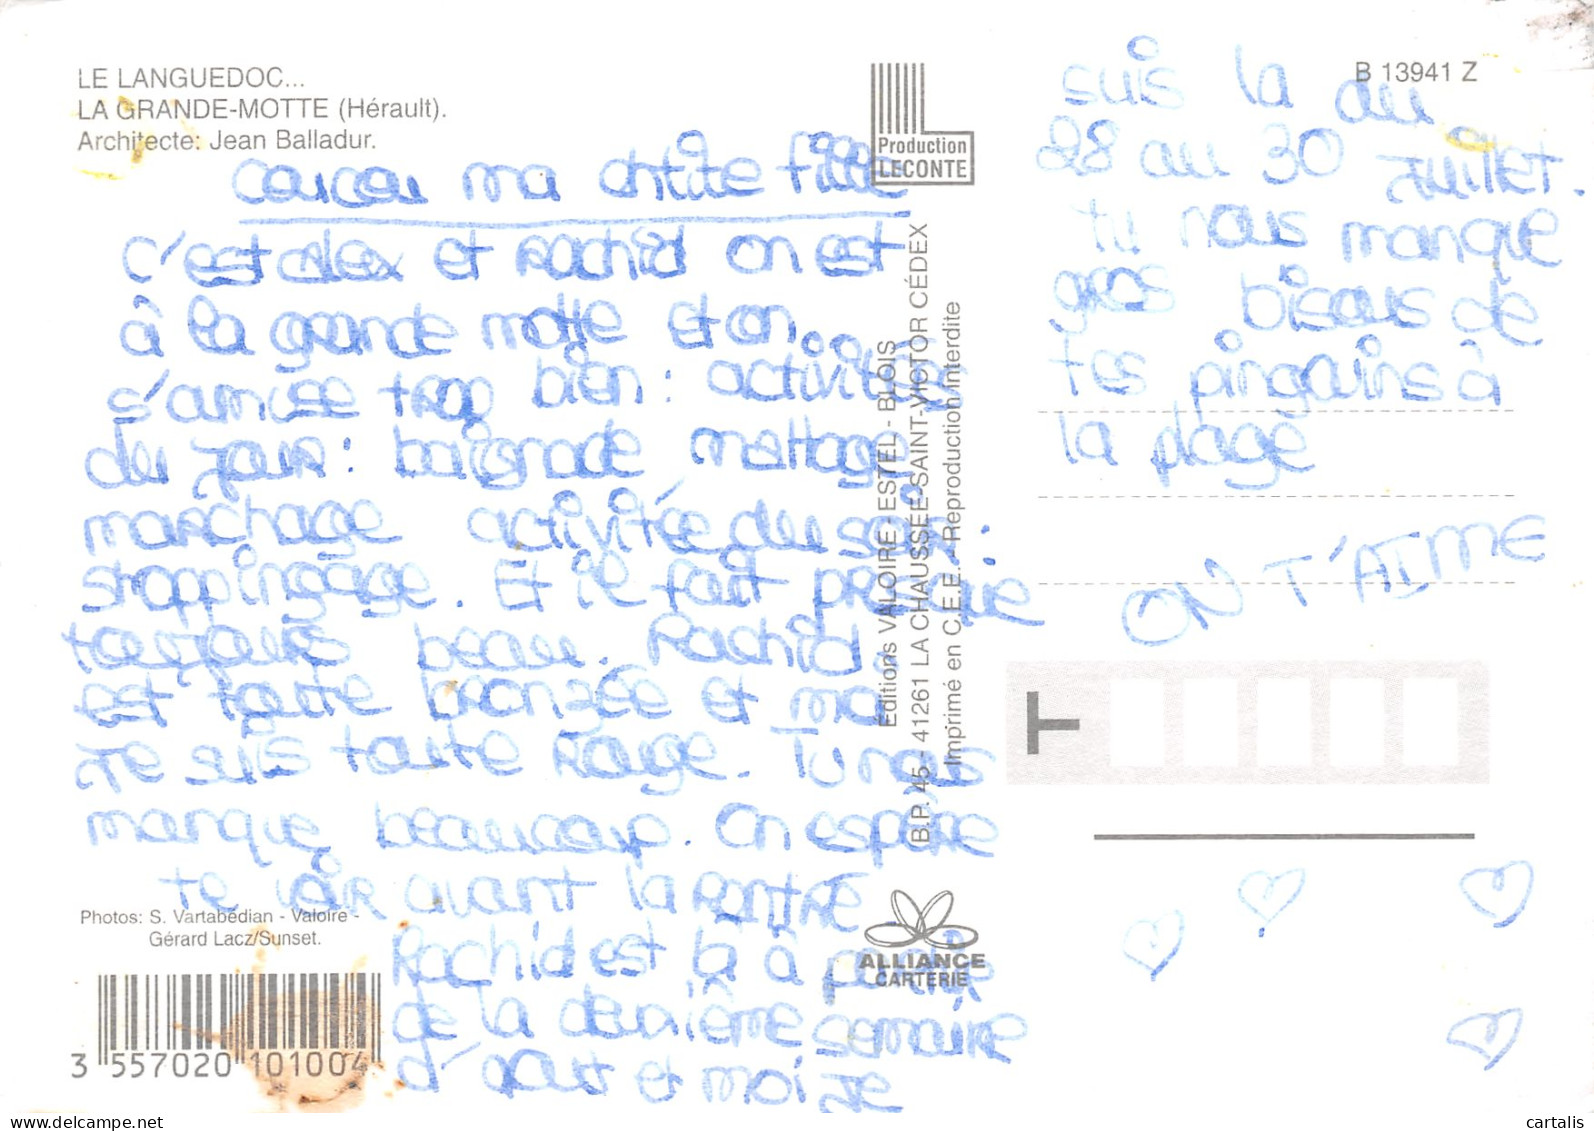 LE LANGUEDOC...
LA GRANDE-MOTTE (Hérault).
Architecte: Jean Balladur.
coucou ma chtite fille
c'est alex et Rachid on est
à la grande motte et on
s'amuse trop bien : activitées
du jour : baignade mattage
marchage activitée du soir :
shoppingage. Et il fait presque
toujours beau. Rachid
est toute bronzée et moi
je suis toute Rouge. Tu nous
manque beaucoup. On espère
te voir avant la rentré
Rachid est la à partir
de la deuxième semaine
d'aout et moi je
suis la du
28 au 30 juillet.
tu nous manque
gros bisous de
tes pingouins à
la plage
ON T'AIME
Production
LECONTE
B 13941 Z
Editions VALOIRE ESTEL - BLOIS
B.P. 45 - 41261 LA CHAUSSEE-SAINT-VICTOR CÉDEX
Imprimé en C.E.E. - Reproduction interdite
Photos: S. Vartabédian - Valoire -
Gérard Lacz/Sunset.
3 557020 101004
ALLIANCE
CARTERIE
www.delcampe.net
cartalis